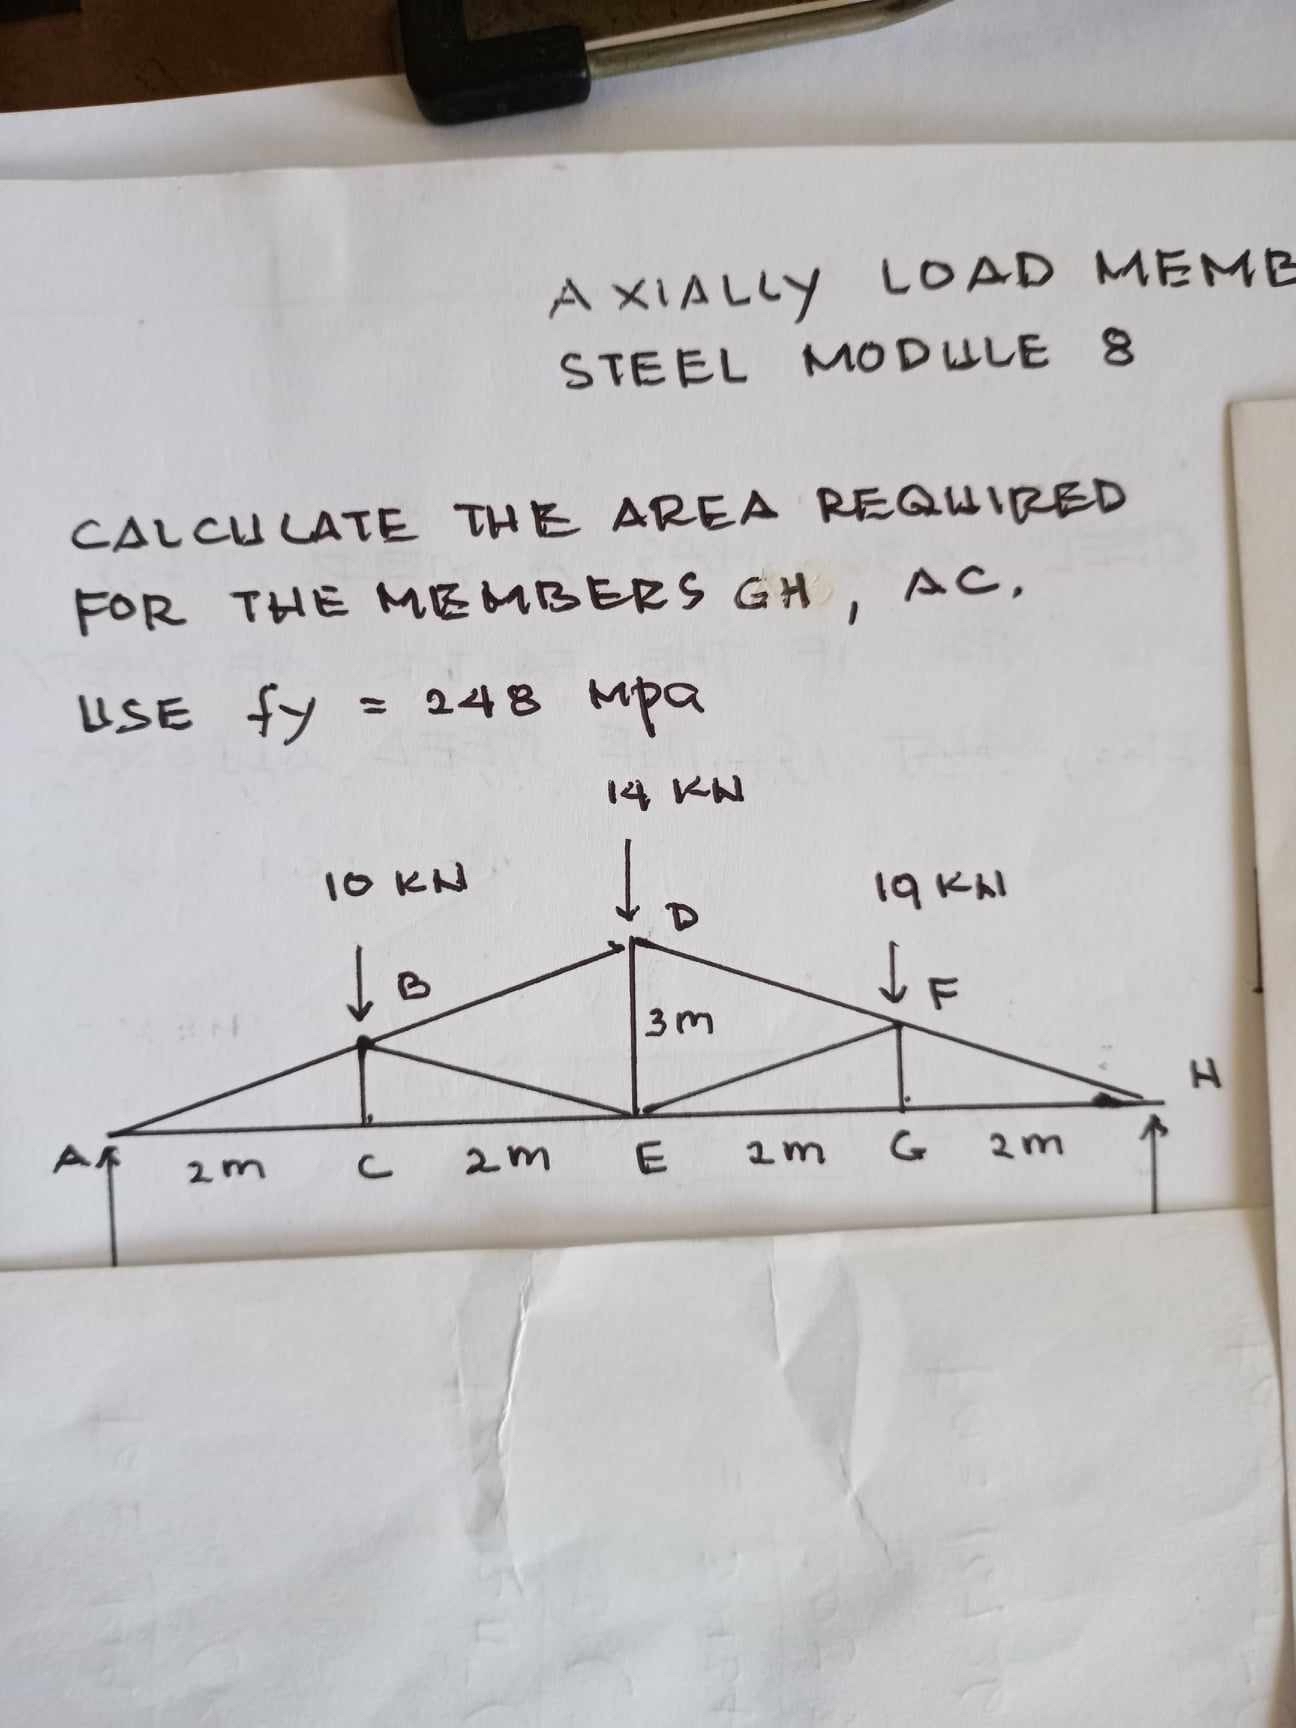 AXIALLY LOAD MEMB
STEEL MODULE 8
CALCULATE THE AREA REQUIRED
FOR THE MEMBERS GH, AC.
USE fy = 248 Mpa
14 KN
10 KN
19 KN
D
B
F
3m
H
A
2m
C
2m
E
2m
G
2m